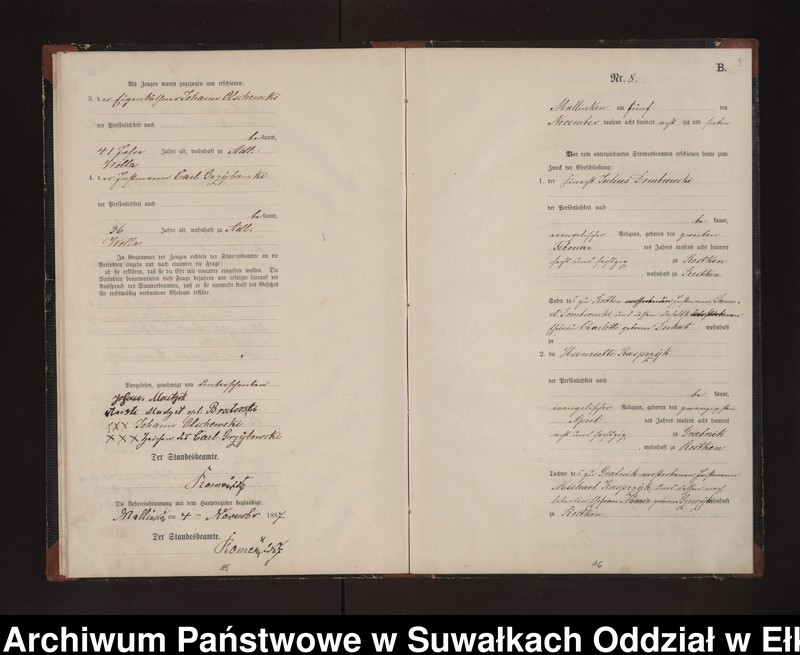 Als Zeugen waren zugezogen und erschienen:
3. der Eigenkäthner Johann Olschewski
der Persönlichkeit nach
be kannt,
41 Jahre Jahre alt, wohnhaft zu Adl:
Wolla
4. der Instmann Carl
der Persönlichkeit nach
be kannt,
36 Jahre alt, wohnhaft zu Adl:
Wolla
In Gegenwart der Zeugen richtete der Standesbeamte an die
Verlobten einzeln und nach einander die Frage:
ob sie erklären, daß sie die Ehe mit einander eingehen wollen. Die
Verlobten beantworteten diese Frage bejahend und erfolgte hierauf der
Ausspruch des Standesbeamten, daß er sie nunmehr kraft des Gesetzes
für rechtmäßig verbundene Eheleute erkläre.
Vorgelesen, genehmigt und unterschrieben
Johann
Johann Olschewski
XXX Zeichen des Carl
Der Standesbeamte.
Die Uebereinstimmung mit dem Hauptregister beglaubigt.
am 4 ten November 1887
Der Standesbeamte.
115
B.
Nr. 8.
Mallenken am fünf ten
November tausend acht hundert acht zig und sieben
Vor dem unterzeichneten Standesbeamten erschienen heute zum
Zweck der Eheschließung:
1. der Julius Dombrowski
der Persönlichkeit nach
be kannt,
evangelischer Religion, geboren den zweiten
Februar des Jahres tausend acht hundert
sechs und sechszig zu Rostken
, wohnhaft zu Rostken
Sohn des zu Rostken Instmann
Dombrowski und dessen daselbst
Ehefrau Charlotte geborene wohnhaft
zu
2. die Henriette Kasprzyk
der Persönlichkeit nach
be kannt,
evangelischer Religion, geboren den zwanzigsten
April des Jahres tausend acht hundert
acht und sechszig zu Grabnik
, wohnhaft zu Rostken
Tochter des zu Grabnik verstorbenen Instmann
Michael Kasprzyk und dessen noch
lebenden Ehefrau geborene wohnhaft
zu Rostken
16
Archiwum Państwowe w Suwałkach Oddział w Ełk